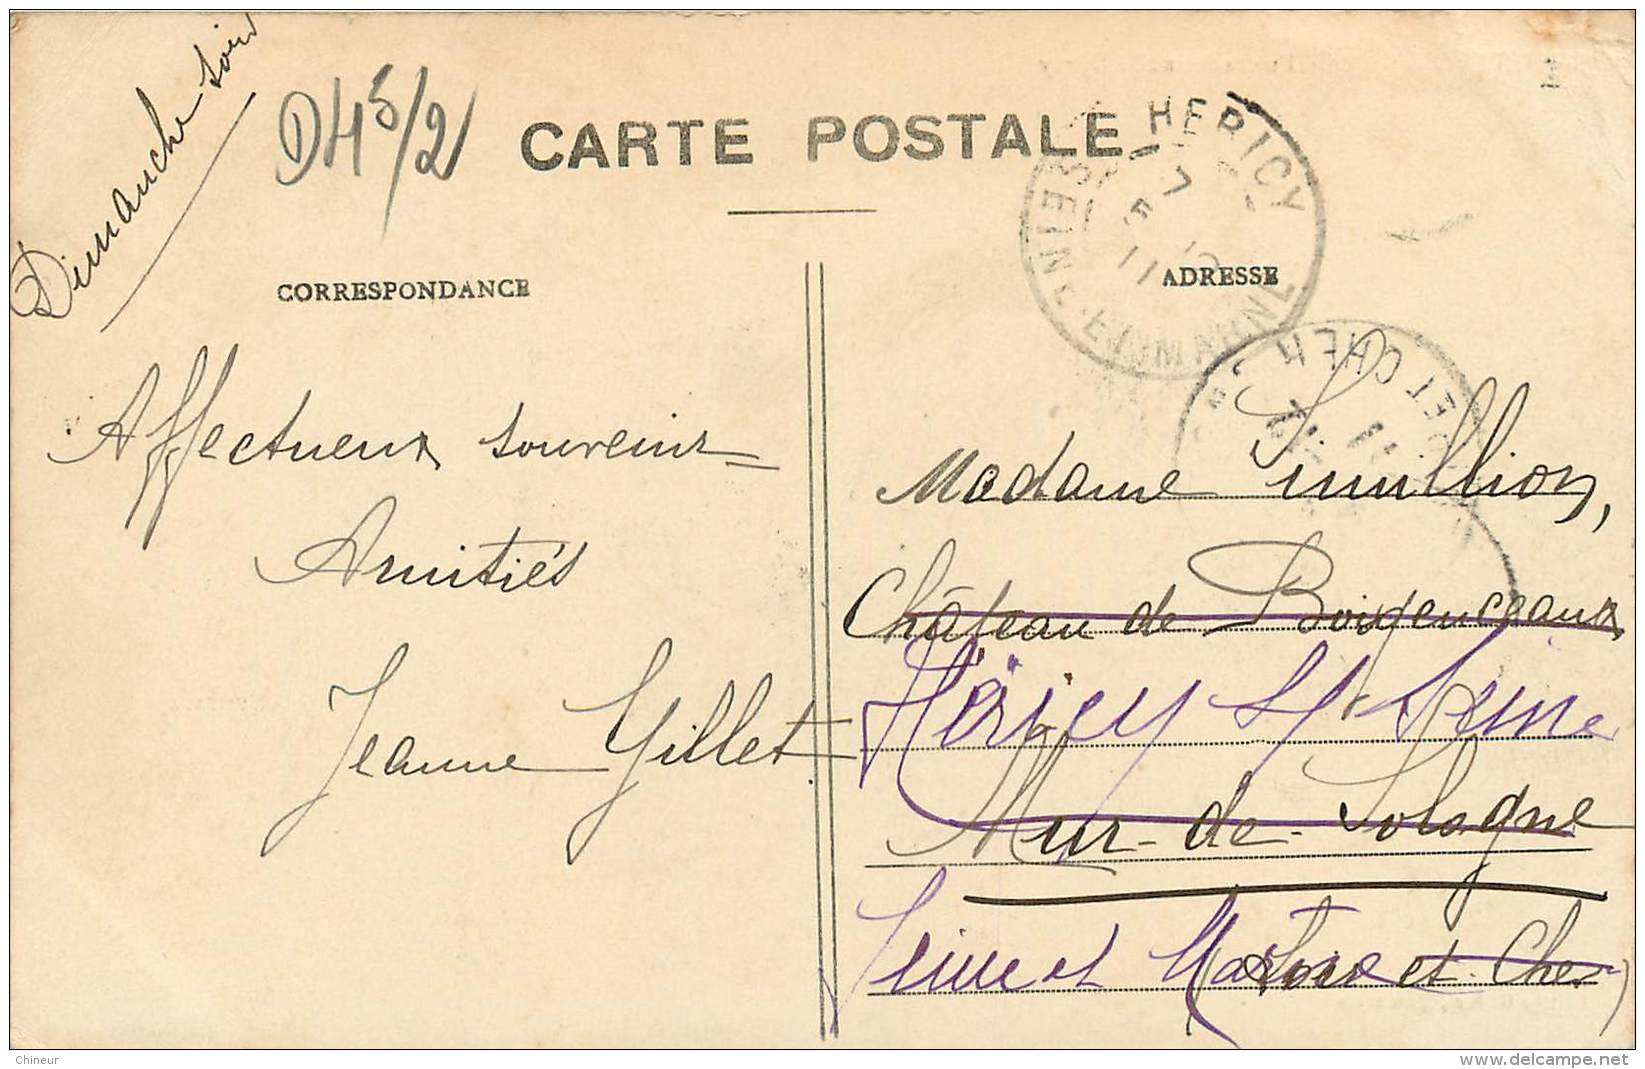 Dimanche soir
D45/2
CARTE POSTALE
HERICY
SEINE-ET-MARNE
7
5
11
CORRESPONDANCE
ADRESSE
ET CHER
11
Affectueux souvenirs
Amitiés
Jeanne Gillet
Madame Simillion,
Château de
Héricy s/ Seine
Mur-de-Sologne
Seine et Marne
Loir et Cher
Chineur
www.delcampe.net